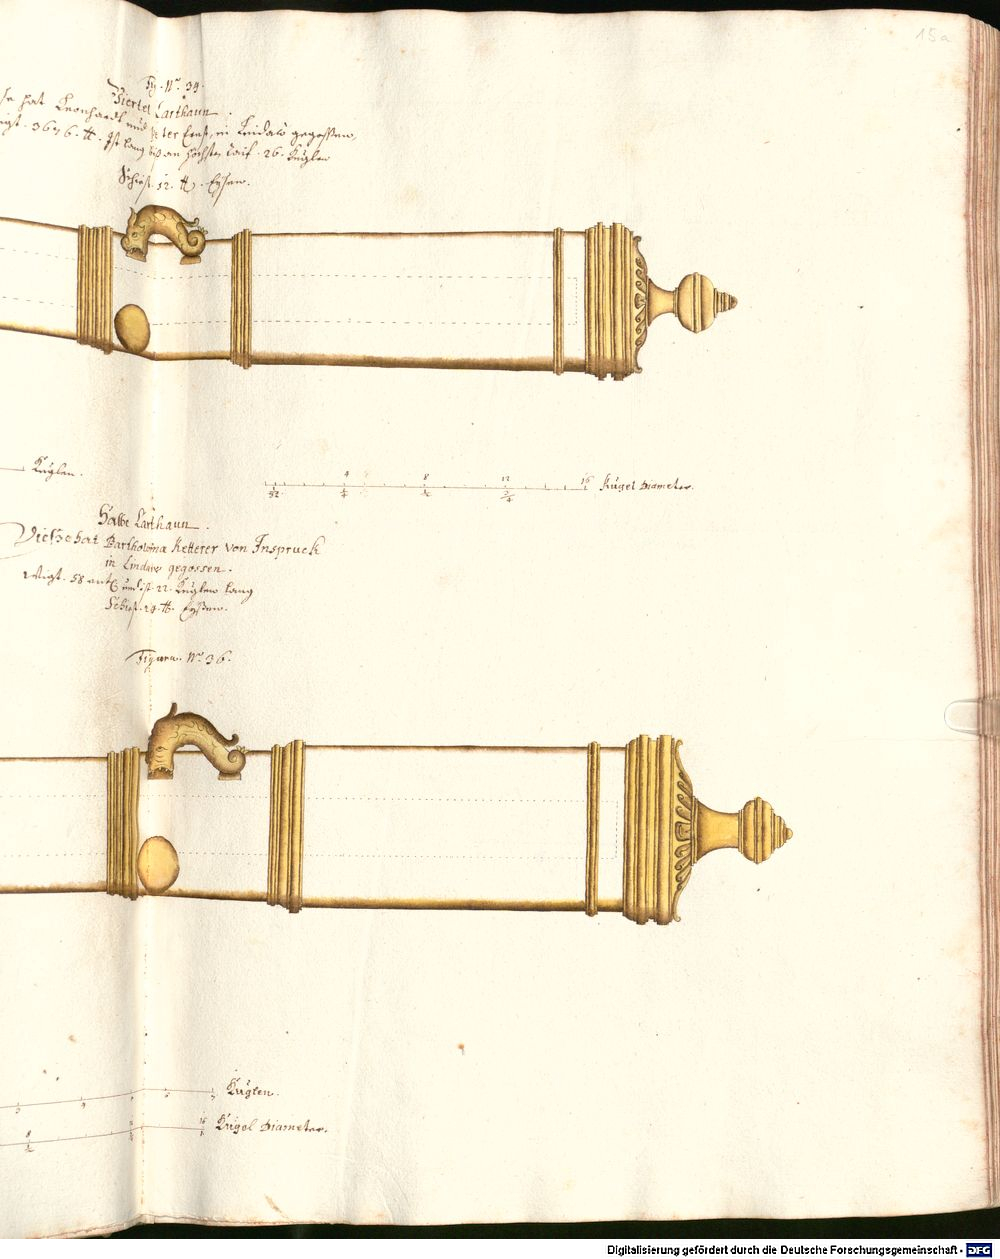 15a
Fig. Nro. 34.
Viertel Carthaun.
se hat Leonhardt und Peter Ernst, in Lindaw gegossen,
wigt. 3676. ℔. Ist lang biß an höchsten Raif. 26. Kuglen
Schiest. 12. ℔. Eysen.
Kuglen.
4 8 12 16
1/32 1/4 1/2 3/4 Kugel Diameter.
Halbe Carthaun.
Diese hat Bartholoma Ketterer von Inspruck
in Lindaw gegossen.
Wigt. 58 cent und ist. 22. Kuglen lang
Schiest. 24. ℔. Eyssen.
Figura. Nro. 36.
3 4 5 6 7 Kuglen.
8 12 16 Kugel Diameter.
Digitalisierung gefördert durch die Deutsche Forschungsgemeinschaft - DFG